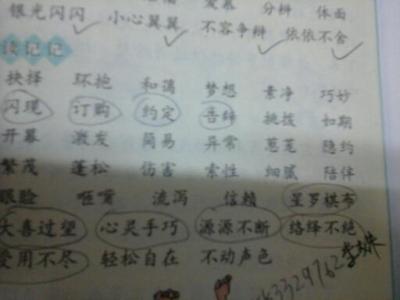 爱慕 分辩 体面
银光闪闪 小心翼翼 不容争辩 依依不舍
读记记
抉择 环抱 和蔼 梦想 素净 巧妙
闪现 订购 约定 告辞 挑拨 如期
开幕 激发 简易 异常 葱茏 隐约
繁茂 蓬松 伤害 索性 细腻 陪伴
眼睑 咂嘴 流泻 信赖 星罗棋布
大喜过望 心灵手巧 源源不断 络绎不绝
受用不尽 轻松自在 不动声色